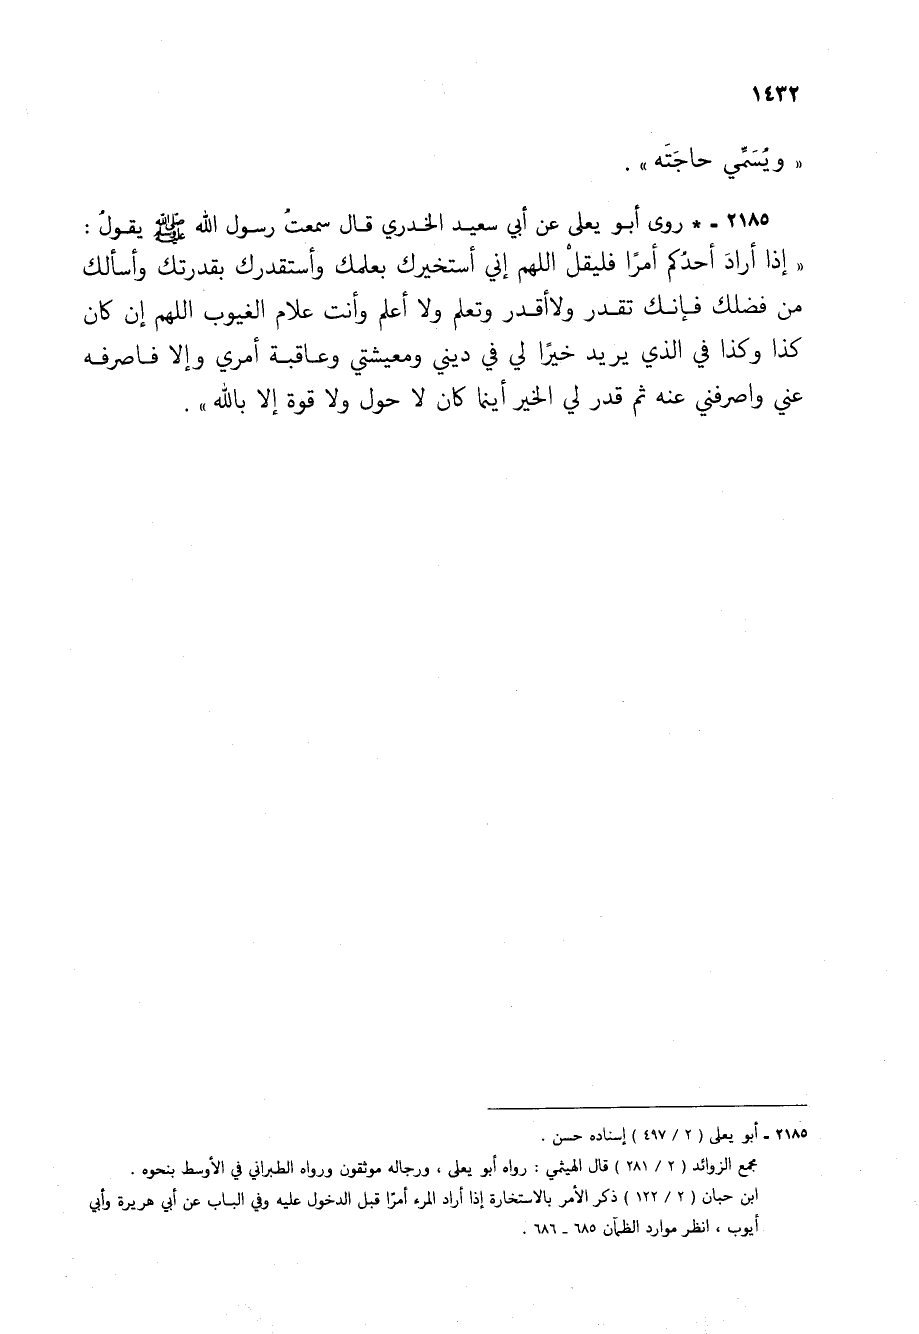 ١٤٣٢
« ويُسَمِّي حاجَتَه » .
٢١٨٥ - * روى أبو يعلى عن أبي سعيد الخدري قال سمعتُ رسول الله ﷺ يقولُ :
« إذا أرادَ أحدُكم أمرًا فليقلْ اللهم إني أستخيرك بعلمك وأستقدرك بقدرتك وأسألك
من فضلك فإنك تقدر ولاأقدر وتعلم ولا أعلم وأنت علام الغيوب اللهم إن كان
كذا وكذا في الذي يريد خيرًا لي في ديني ومعيشتي وعاقبة أمري وإلا فاصرفه
عني واصرفني عنه ثم قدر لي الخير أينما كان لا حول ولا قوة إلا بالله » .
٢١٨٥ - أبو يعلى ( ٢ / ٤٩٧ ) إسناده حسن .
مجمع الزوائد ( ٢ / ٢٨١ ) قال الهيثمي : رواه أبو يعلى ، ورجاله موثقون ورواه الطبراني في الأوسط بنحوه .
ابن حبان ( ٢ / ١٢٢ ) ذكر الأمر بالاستخارة إذا أراد المرء أمرًا قبل الدخول عليه وفي الباب عن أبي هريرة وأبي
أيوب ، انظر موارد الظمآن ٦٨٥ - ٦٨٦ .